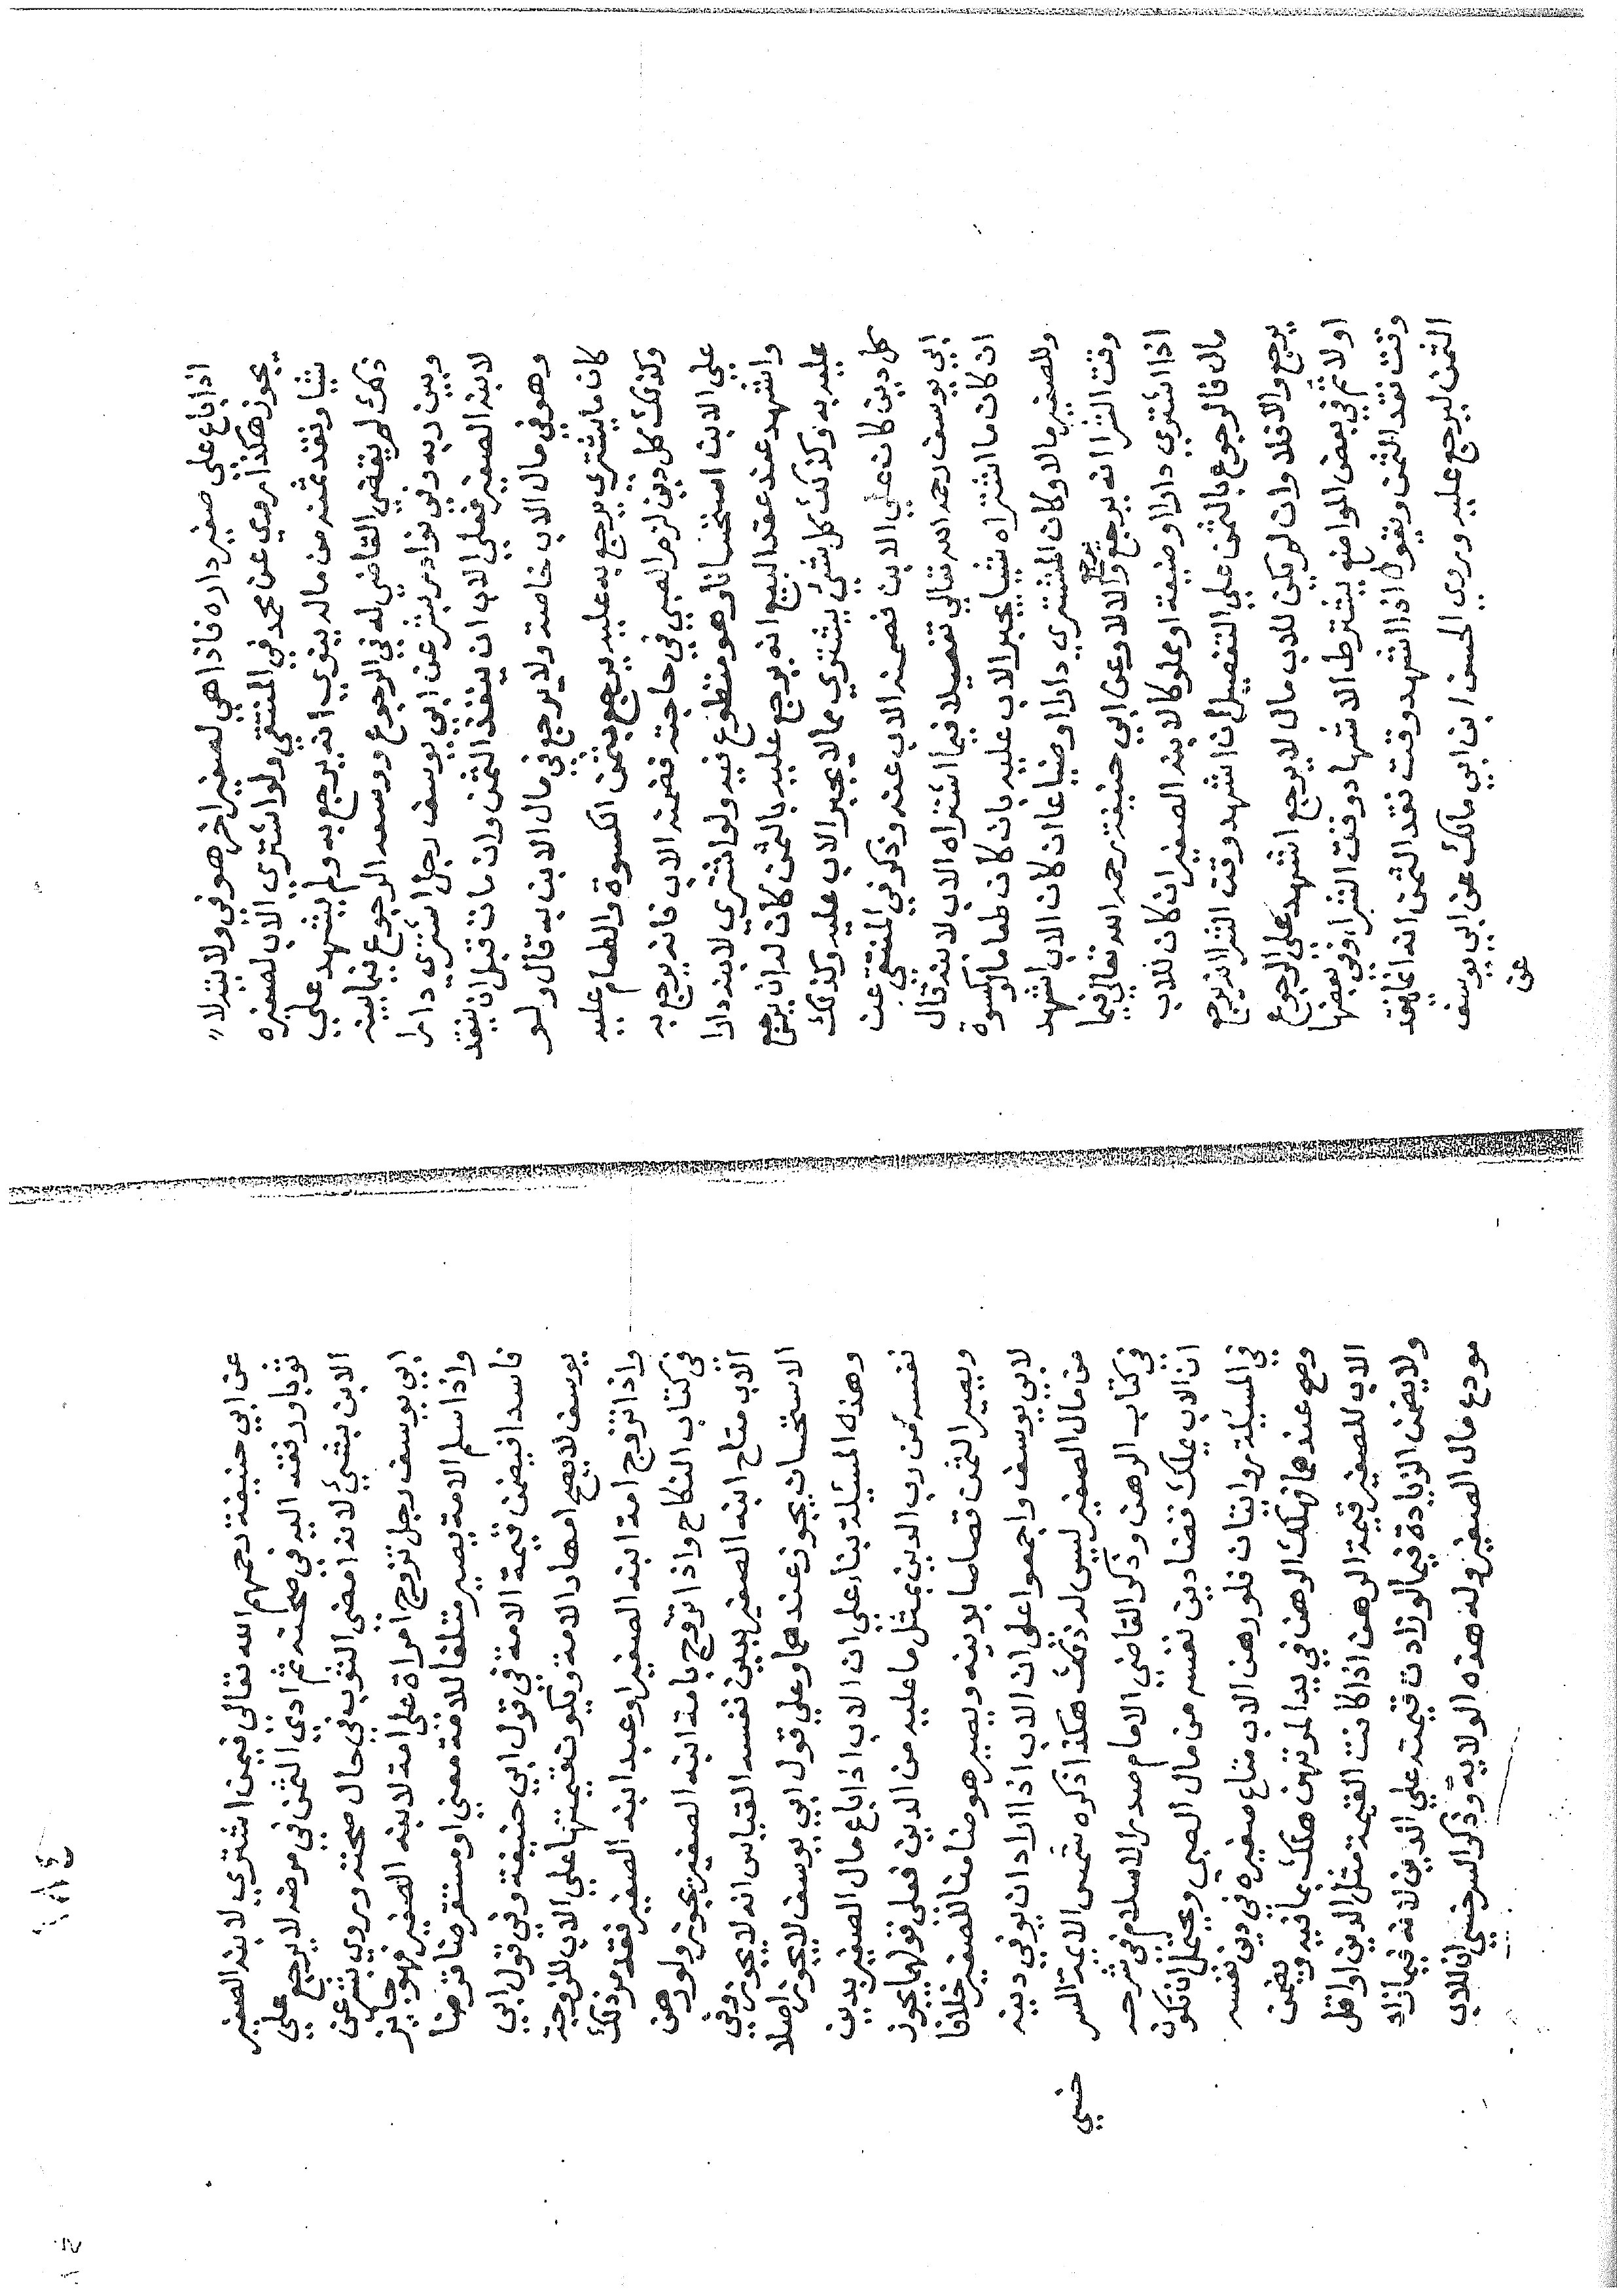 اذا باع على صغير داره فاذا هي لصغير اخر هو في ولايته لا
يجوز هكذا روي عن محمد في المنتقي ولو اشتري الاب لصغيره
شيا ونقد ثمنه من ماله ينوي انه يرجع به ولم يشهد علي
ذلك لم يقض القاضي له في الرجوع ووسعه الرجوع فيما بينه
وبين ربه وفي نوادر بشر عن ابي يوسف رجل اشتري دارا
لابنه الصغير فعلي الاب ان ينقد الثمن وان مات قبل ان ينقد
وهو في مال الاب خاصة ولا يرجع في مال الابن به قال ولو
كان ما يشتري يرجع به عليه يرجع بثمن الكسوة والطعام عليه
وكذلك كل دين لزم الصبي في حاجته فضمنه الاب فانه يرجع به
علي الابن استحسانا وهو متطوع فيه ولو اشتري لابنه دارا
واشهد عند عقد البيع انه يرجع عليه بالثمن كان له ان يرجع
عليه به وكذلك كل شئ يشتري مما لا يجبر الاب عليه وكذلك
كل دين كان علي الابن فضمنه الاب عنه وذكر في المنتقي عن
ابي يوسف رحمه الله تعالي تفصيلا فيما اشتراه الاب لابنه قال
ان كان ما اشتراه شيا يجبر الاب عليه بان كان طعاما او كسوة
وللصغير مال او كان المشتري دارا او ضياعا ان كان الاب اشهد
وقت الشرا انه يرجع يرجع والا لا وعن ابي حنيفة رحمه الله تعالي فيما
اذا اشتري دارا او ضيعة او مملوكا لابنه الصغير ان كان للاب
مال فالرجوع بالثمن علي التفصيل ان اشهد وقت الشرا انه يرجع
يرجع والا فلا وان لم يكن للاب مال لا يرجع اشهد علي الرجوع
او لا ثم في بعض المواضع يشترط الاشهاد وقت الشراء وفي بعضها
وقت نقد الثمن ويقول اذا اشهد وقت نقد الثمن انه انما ينقد
الثمن ليرجع عليه وروي الحسن ابن ابي مالك عن ابي يوسف
عن
عن ابي حنيفة رحمهم الله تعالي فيمن اشتري لابنه الصغير
ثوبا ودفعه اليه في صحته ثم ادي الثمن في مرضه لا يرجع علي
الابن بشئ لانه امضي الثوب في حال صحته وروي بشر عن
ابي يوسف رجل تزوج امراة على امة لابنه الصغير فهو جايز
واذا سلم الامة يصير متلفا للامة معني او مستقرضا قرضا
فاسدا فيضمن قيمة الامة في قول ابي حنيفة وفي قول ابي
يوسف لا يصح امهار الامة ويكون قيمتها علي الاب للزوجة
واذا تزوج امة ابنه الصغير او عبد ابنه الصغير فقد مر ذلك
في كتاب النكاح واذا تزوج بامة ابنه الصغير يجوز ولو رهن
الاب متاح ابنه الصغير بدين نفسه القياس انه لا يجوز وفي
الاستحسان يجوز عندهما وعلي قول ابي يوسف لا يجوز اصلا
وهذه المسئلة بناء علي ان الاب اذا باع مال الصغير بدين
نفسه من رب الدين بمثل ما عليه من الدين فعلي قولهما يجوز
ويصير الثمن قصاصا بدينه ويصير هو ضامنا للصغير خلافا
لابي يوسف واجمعوا علي ان الاب اذا اراد ان يوفي دينه
من مال الصغير ليس له ذلك هكذا ذكره شمس الايمة السر
خسي
في كتاب الرهن وذكر القاضي الامام صدر الاسلام في شرحه
ان الاب يملك قضا دين نفسه من مال الصبي ويحتمل ان تكون
في المسيلة روايتان فلو رهن الاب متاع صغيره في دين نفسه
وصح عندهما فهلك الرهن في يد المرتهن هلك بما فيه ويضمن
الاب للصغير قيمة الرهن اذا كانت القيمة مثل الدين او اقل
ولا يضمن الزيادة فيما لو زادت قيمته علي الدين لانه فيما زاد
مودع مال الصغير وله هذه الولاية وذكر السرخسي ان للاب